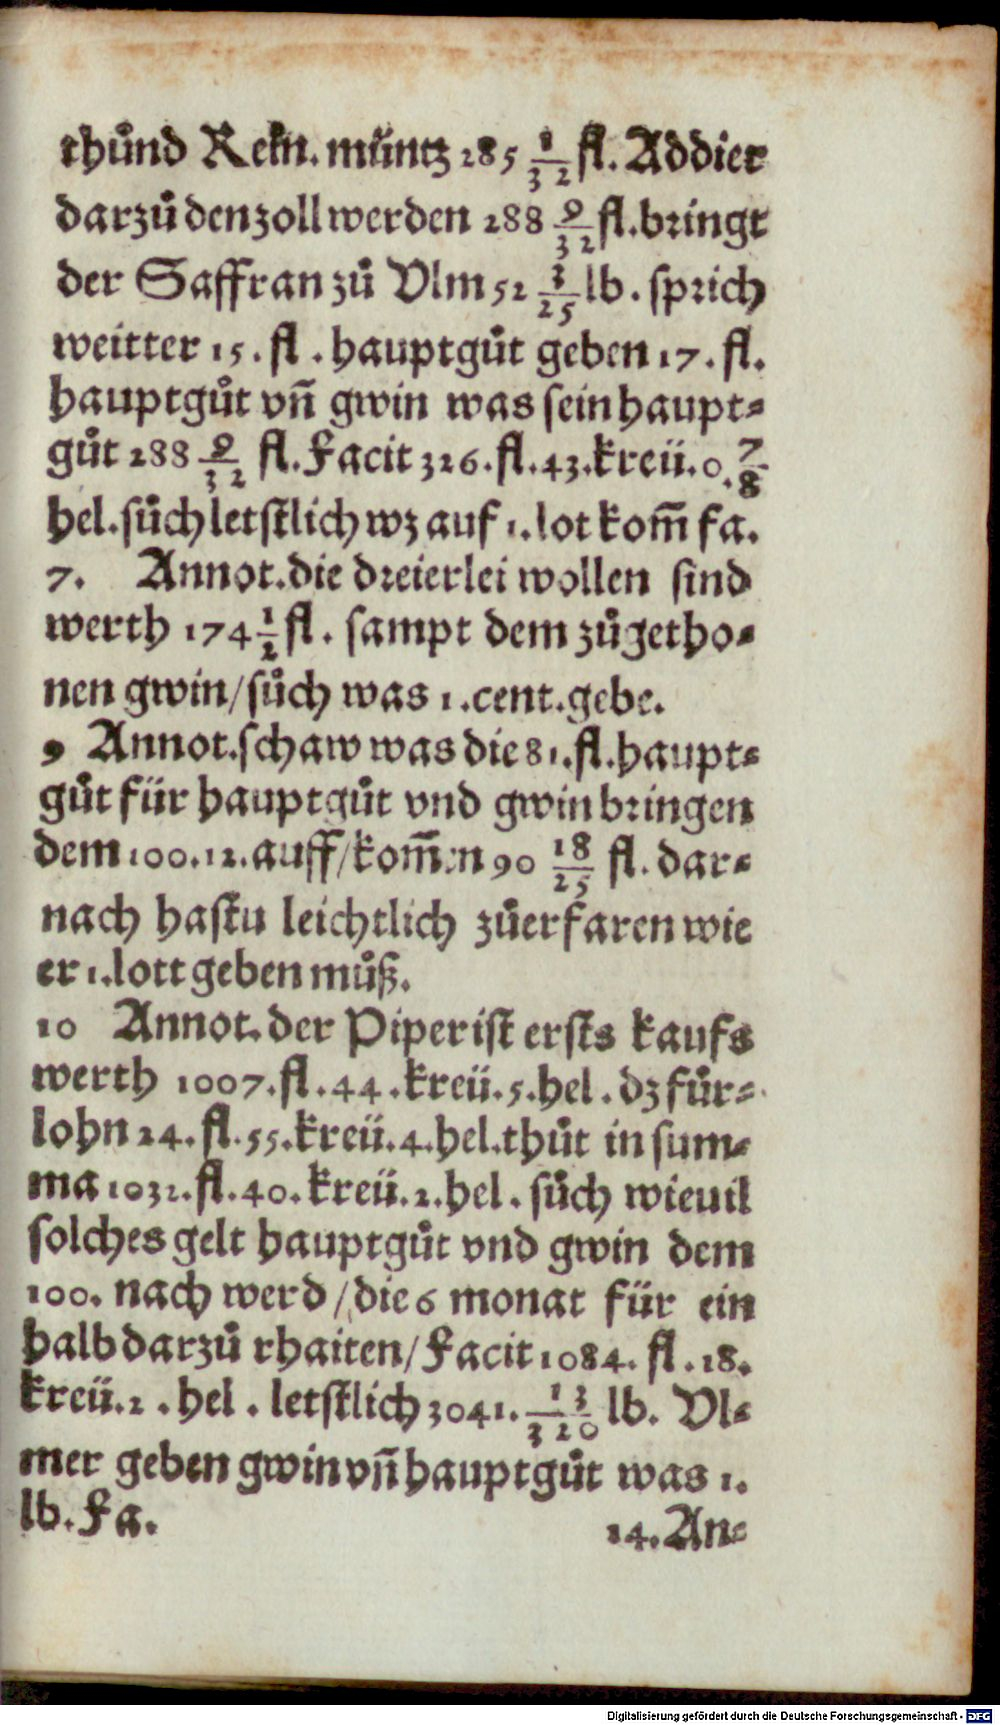 thůnd Rekn. müntz 285 1/32 fl. Addier
darzů den zoll werden 288 9/32 fl. bringt
der Saffran zů Vlm 52 3/25 lb. sprich
weitter 15. fl. hauptgůt geben 17. fl.
hauptgůt vñ gwin was sein haupt-
gůt 288 9/32 fl. Facit 326. fl. 43. kreü. 0. 7/8
hel. sůch letstlich wz auf 1. lot kom̃ fa.
7. Annot. die dreierlei wollen sind
werth 174 1/2 fl. sampt dem zůgetho-
nen gwin/ sůch was 1. cent. gebe.
9 Annot. schaw was die 81. fl. haupt-
gůt für hauptgůt vnd gwin bringen
dem 100. 12. auff/ kom̃en 90 18/25 fl. dar-
nach hastu leichtlich zůerfaren wie
er 1. lott geben můß.
10 Annot. der Piper ist ersts kaufs
werth 1007. fl. 44. kreü. 5. hel. dz für-
lohn 24. fl. 55. kreü. 4. hel. thůt in sum-
ma 1032. fl. 40. kreü. 2. hel. sůch wieuil
solches gelt hauptgůt vnd gwin dem
100. nach werd/ die 6 monat für ein
halb darzů rhaiten/ Facit 1084. fl. 18.
kreü. 2. hel. letstlich 3041. 13/320 lb. Vl-
mer geben gwin vñ hauptgůt was 1.
lb. Fa.
14. An-
Digitalisierung gefördert durch die Deutsche Forschungsgemeinschaft - DFG